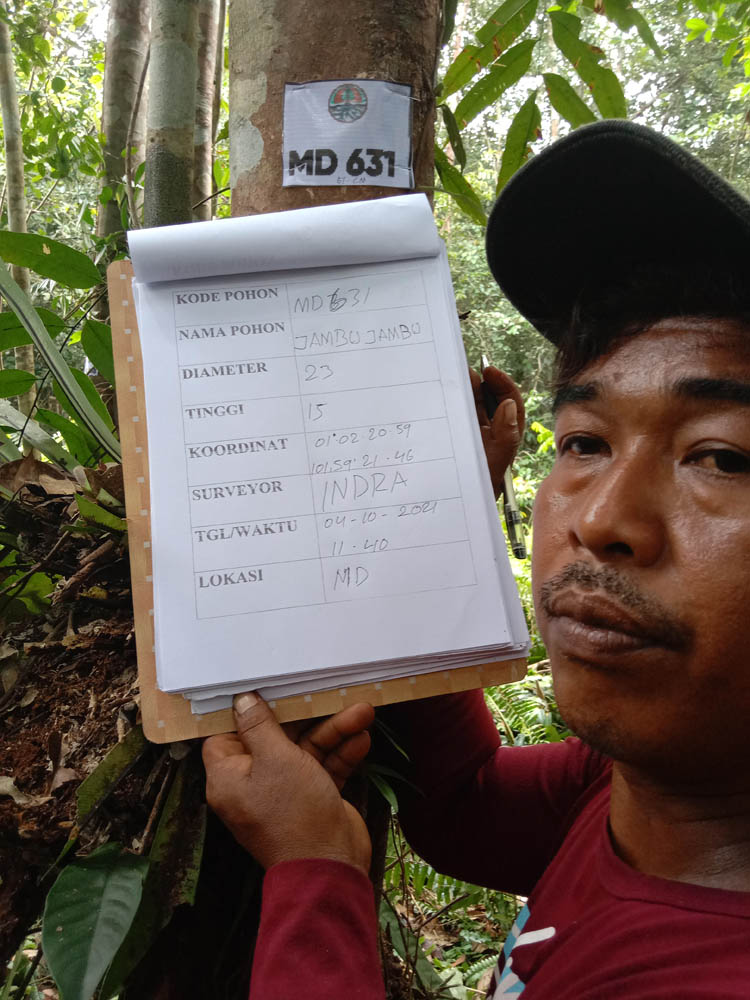 MD 631
KODE POHON MD 631
NAMA POHON JAMBU JAMBU
DIAMETER 23
TINGGI 15
KOORDINAT 01°02.20.59
101.59.21.46
SURVEYOR INDRA
TGL/WAKTU 04-10-2021
11-40
LOKASI MD